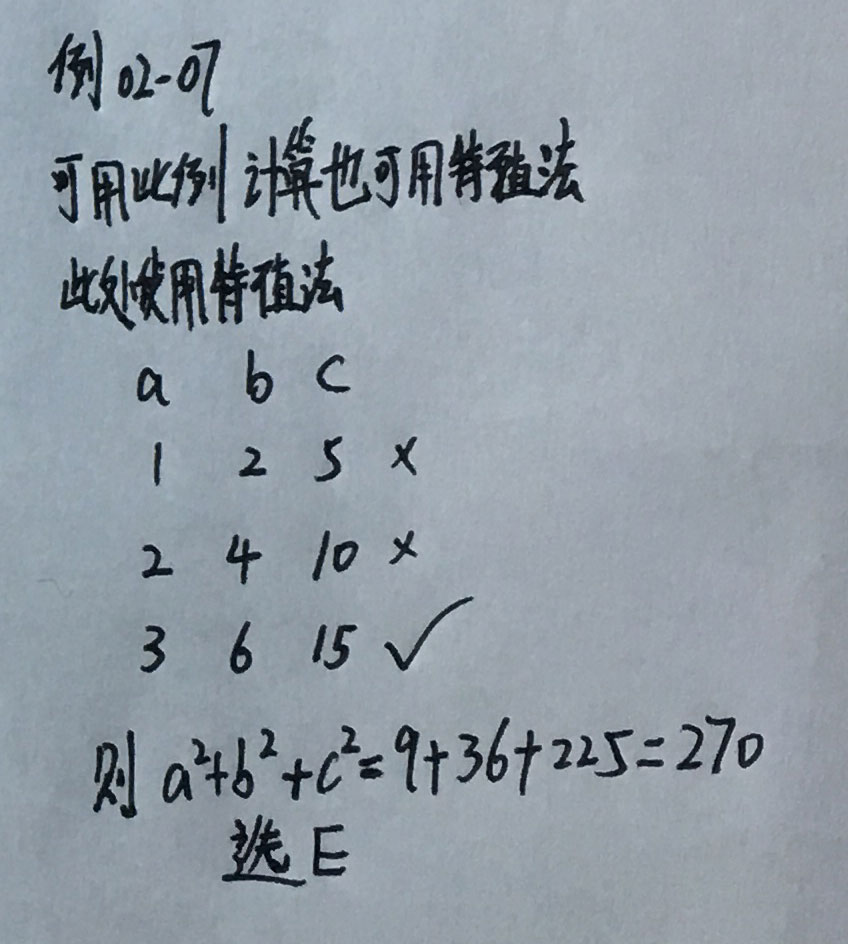 例02-07
可用比例计算也可用特殖法
此处使用特值法
a b c
1 2 5 ×
2 4 10 ×
3 6 15 ✓
则 a²+b²+c²=9+36+225=270
选E